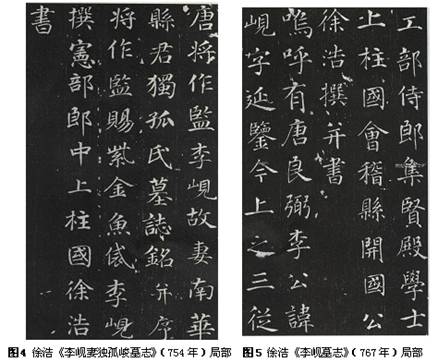 唐将作監李峴故妻南華
縣君獨孤氏墓誌銘并序
将作監賜紫金魚袋李峴
撰憲部郎中上柱國徐浩
書
图4 徐浩《李岘妻独孤峻墓志》（754年）局部
工部侍郎集賢殿學士
上柱國會稽縣開國公
徐浩撰并書
嗚呼有唐良弼李公諱
峴字延鑒今上之三從
图5 徐浩《李岘墓志》（767年）局部